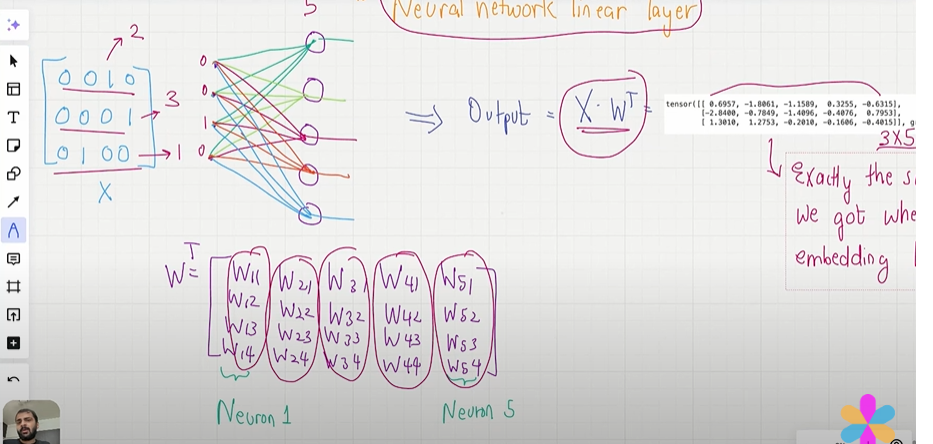 5
Neural network linear layer
2
0 0 1 0
0 0 0 1
3
0 1 0 0
1
X
0
0
1
0
⇒ Output = X · Wᵀ =
tensor([[ 0.6957, -1.8061, -1.1589, 0.3255, -0.6315],
[-2.8400, -0.7849, -1.4096, -0.4076, 0.7953],
[ 1.3010, 1.2753, -0.2010, -0.1606, -0.4015]], g
3X5
Exactly the s
we got whe
embedding
Wᵀ =
W11 W21 W31 W41 W51
W12 W22 W32 W42 W52
W13 W23 W33 W43 W53
W14 W24 W34 W44 W54
Neuron 1 Neuron 5